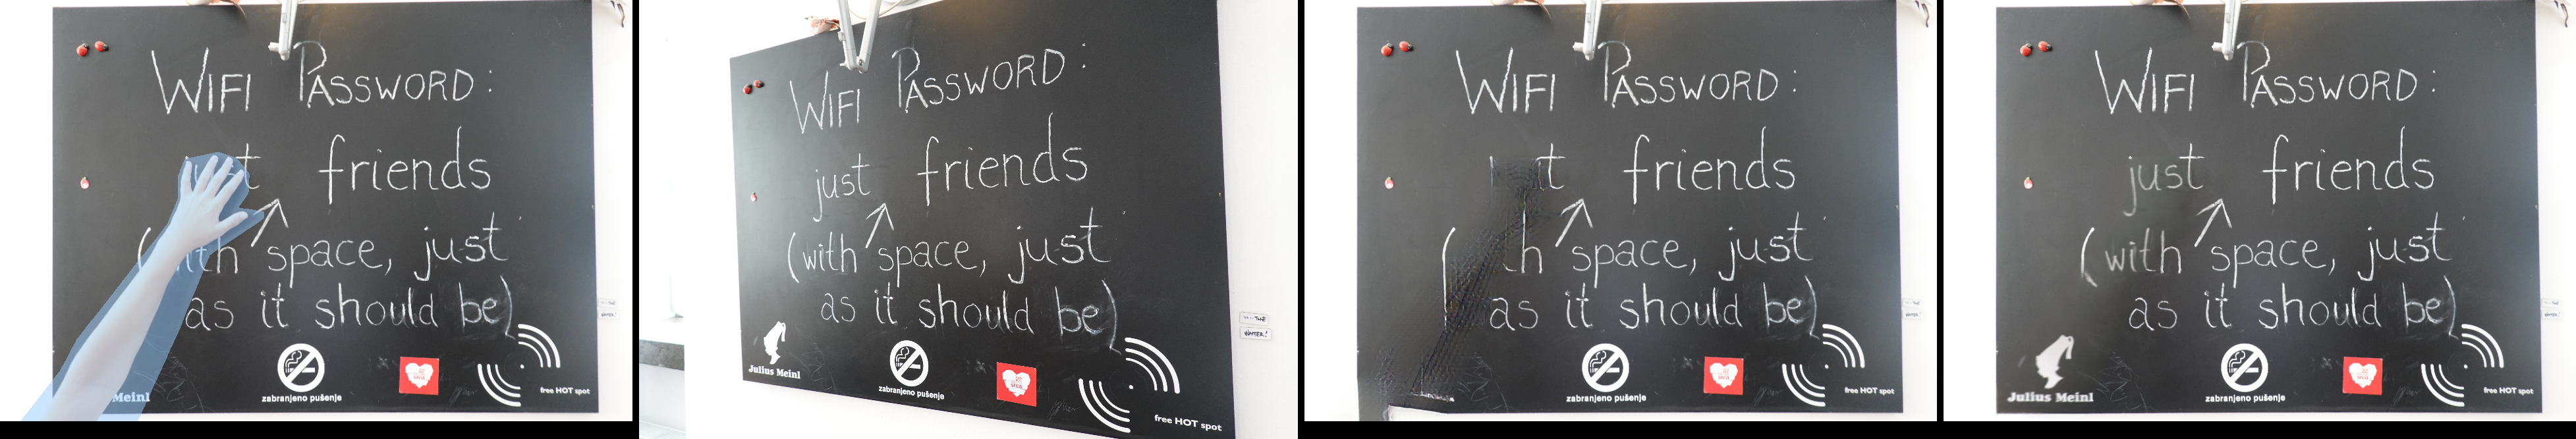 WIFI PASSWORD:
friends
space, just
as it should be)
Meinl
zabranjeno pušenje
free HOT spot
WIFI PASSWORD:
just friends
(with space, just
as it should be)
THE
WINTER!
Julius Meinl
zabranjeno pušenje
free HOT spot
WIFI PASSWORD:
friends
space, just
as it should be)
zabranjeno pušenje
free HOT spot
WIFI PASSWORD:
just friends
(with space, just
as it should be)
Julius Meinl
zabranjeno pušenje
free HOT spot